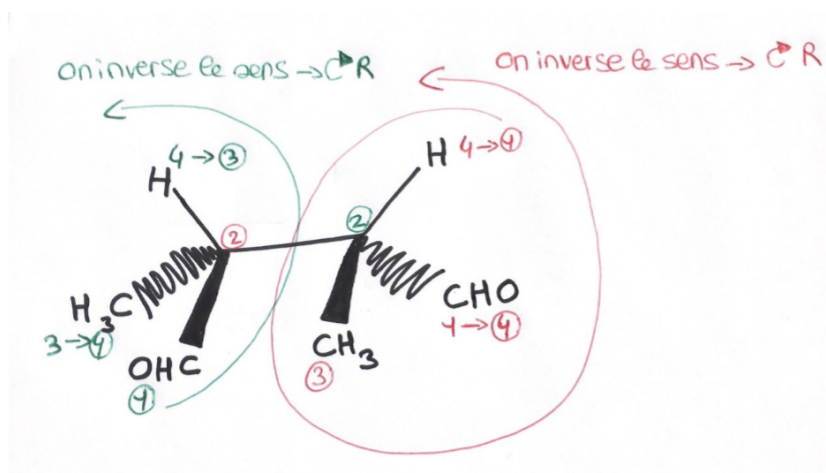 On inverse le sens → ↻ R
On inverse le sens → ↻ R
4 → ③
H
H 4 → ①
②
②
H₃C
3 → ④
OHC
①
CH₃
③
CHO
1 → ④